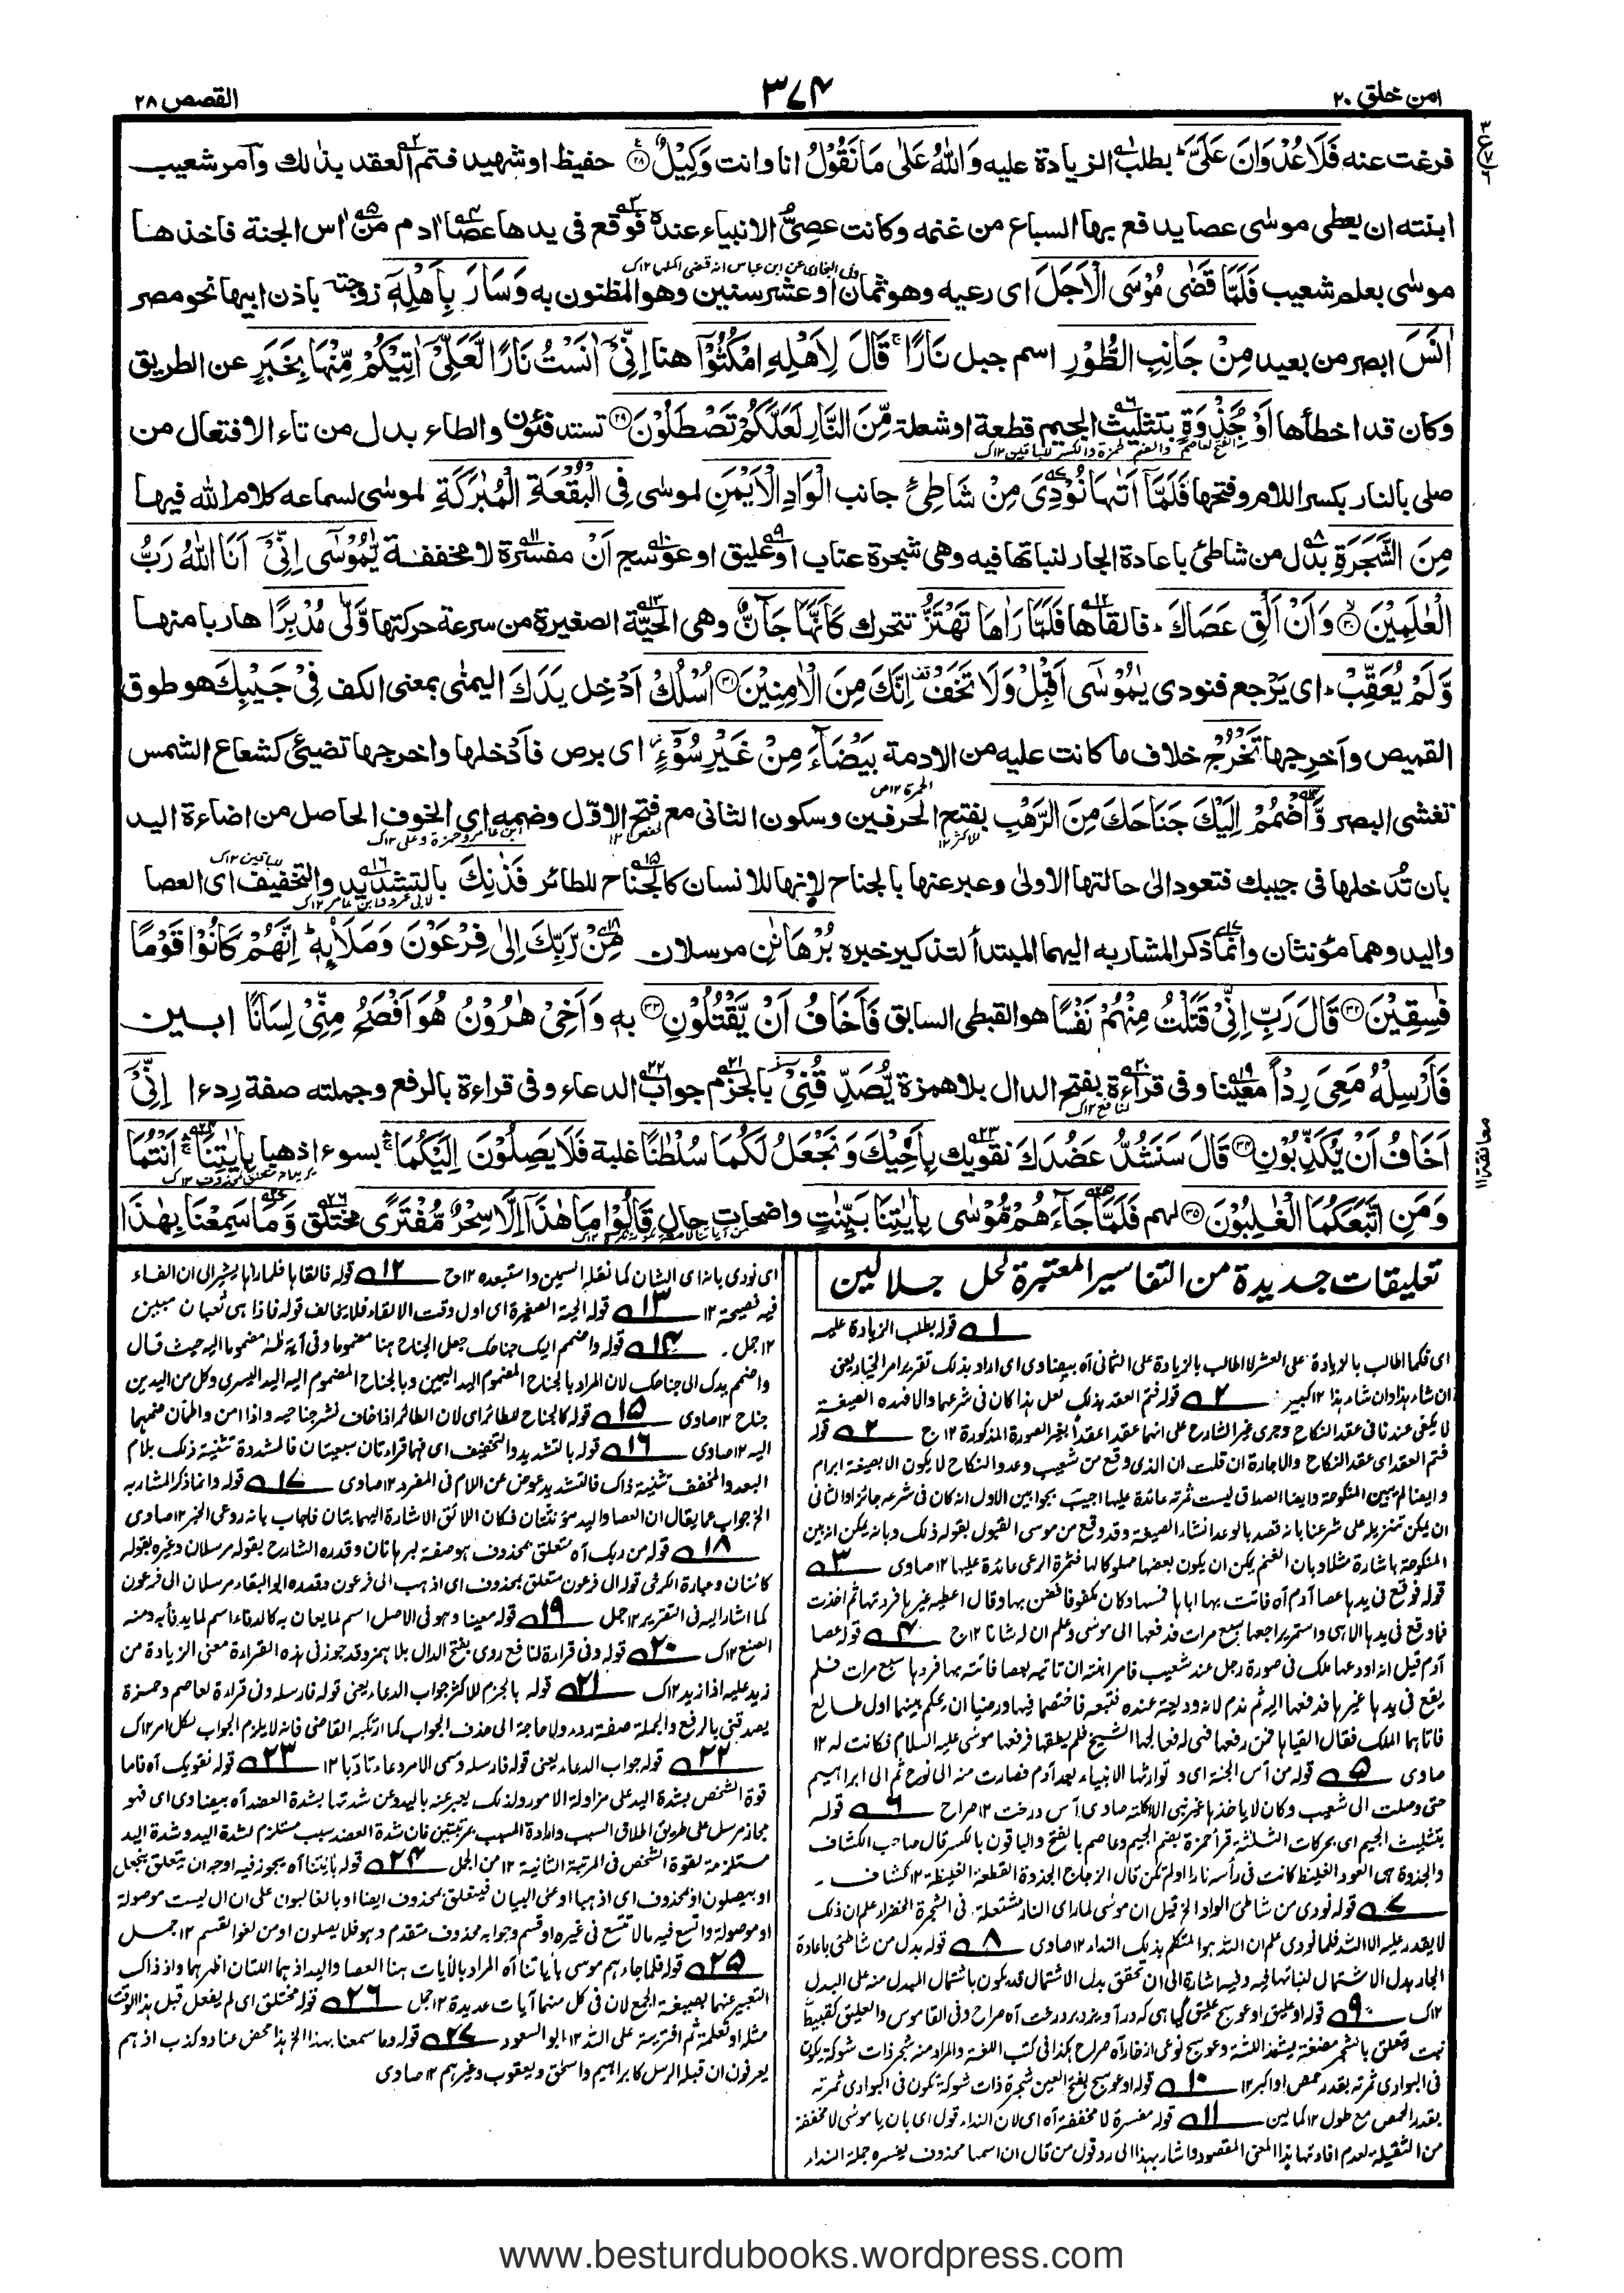 امن خلق ٢٠
٣٧٤
القصص ٢٨
فرغت عنه فَلَا عُدْوَانَ عَلَيَّ بطلب الزيادة عليه وَاللّٰهُ عَلٰى مَا نَقُوْلُ انا وانت وَكِيْلٌ ۝٢٨ حفيظ او شهيد فتم العقد بذلك وآمر شعيب
ابنته ان يعطى موسٰى عصا يدفع بها السباع من غنمه وكانت عصِيُّ الانبياء عنده فوقع فى يدها عصا اٰدم من اٰس الجنة فاخذها
موسٰى بعلم شعيب فَلَمَّا قَضٰى مُوْسَى الْاَجَلَ اى رعيه وهو ثمان او عشر سنين وهو المظنون به وَسَارَ بِاَهْلِهٖٓ زوجته باذن ابيها نحو مصر
اٰنَسَ ابصر من بعيد مِنْ جَانِبِ الطُّوْرِ اسم جبل نَارًا ۚ قَالَ لِاَهْلِهِ امْكُثُوْٓا هنا اِنِّيْٓ اٰنَسْتُ نَارًا لَّعَلِّيْٓ اٰتِيْكُمْ مِّنْهَا بِخَبَرٍ عن الطريق
وكان قد اخطأها اَوْ جَذْوَةٍ بتثليث الجيم قطعة او شعلة مِّنَ النَّارِ لَعَلَّكُمْ تَصْطَلُوْنَ ۝٢٩ تستدفئون والطاء بدل من تاء الافتعال من
صلى بالنار بكسر اللام وفتحها فَلَمَّآ اَتٰىهَا نُوْدِيَ مِنْ شَاطِئِ جانب الْوَادِ الْاَيْمَنِ لموسٰى فِي الْبُقْعَةِ الْمُبٰرَكَةِ لموسٰى لسماعه كلام الله فيها
مِنَ الشَّجَرَةِ بدل من شاطئ باعادة الجار لنباتها فيه وهى شجرة عناب او عليق او عوسج اَنْ مفسرة لا مخففة يّٰمُوْسٰٓى اِنِّيْٓ اَنَا اللّٰهُ رَبُّ
الْعٰلَمِيْنَ ۝٣٠ وَاَنْ اَلْقِ عَصَاكَ ۚ فالقاها فَلَمَّا رَاٰهَا تَهْتَزُّ تتحرك كَاَنَّهَا جَآنٌّ وهى الحيَّة الصغيرة من سرعة حركتها وَّلّٰى مُدْبِرًا هاربا منها
وَّلَمْ يُعَقِّبْ ۚ اى يَرجع فنودى يٰمُوْسٰٓى اَقْبِلْ وَلَا تَخَفْ اِنَّكَ مِنَ الْاٰمِنِيْنَ ۝٣١ اُسْلُكْ اَدْخِل يَدَكَ اليمنٰى بمعنى الكف فِيْ جَيْبِكَ هو طوق
القميص وآخرجها تَخْرُجْ خلاف ما كانت عليه من الادمة بَيْضَآءَ مِنْ غَيْرِ سُوْٓءٍ اى برص فاَدْخلها واخرجها تضيئ كشعاع الشمس
تغشى البصر وَّاضْمُمْ اِلَيْكَ جَنَاحَكَ مِنَ الرَّهْبِ بفتح الحرفين وسكون الثانى مع فتح الاوّل وضمه اى الخوف الحاصل من اضاءة اليد
بان تُدخلها فى جيبك فتعود الى حالتها الاولى وعبر عنها بالجناح لانها للانسان كالجناح للطائر فَذٰنِكَ بالتشديد والتخفيف اى العصا
واليد وهما مؤنثان وانما ذكر المشار به اليهما المبتدأ لتذكير خبره بُرْهَانٰنِ مرسلان مِنْ رَّبِّكَ اِلٰى فِرْعَوْنَ وَمَلَا۟ئِهٖ ۚ اِنَّهُمْ كَانُوْا قَوْمًا
فٰسِقِيْنَ ۝٣٢ قَالَ رَبِّ اِنِّيْ قَتَلْتُ مِنْهُمْ نَفْسًا هو القبطى السابق فَاَخَافُ اَنْ يَّقْتُلُوْنِ ۝٣٣ به وَاَخِيْ هٰرُوْنُ هُوَ اَفْصَحُ مِنِّيْ لِسَانًا ابين
فَاَرْسِلْهُ مَعِيَ رِدْاً معينا وفى قراءة بفتح الدال بلا همزة يُّصَدِّقُنِيْٓ بالجزم جواب الدعاء وفى قراءة بالرفع وجملته صفة رِدءا اِنِّيْٓ
اَخَافُ اَنْ يُّكَذِّبُوْنِ ۝٣٤ قَالَ سَنَشُدُّ عَضُدَكَ نقويك بِاَخِيْكَ وَنَجْعَلُ لَكُمَا سُلْطٰنًا غلبة فَلَا يَصِلُوْنَ اِلَيْكُمَا ۚ بسوء اذهبا بِاٰيٰتِنَآ ۚ اَنْتُمَا
وَمَنِ اتَّبَعَكُمَا الْغٰلِبُوْنَ ۝٣٥ لهم فَلَمَّا جَآءَهُمْ مُّوْسٰى بِاٰيٰتِنَا بَيِّنٰتٍ واضحات حال قَالُوْا مَا هٰذَآ اِلَّا سِحْرٌ مُّفْتَرًى مختلق وَّمَا سَمِعْنَا بِهٰذَا
معانقة ١١
تعليقات جديدة من التفاسير المعتبرة لحل جلالين
١ قوله بطلب الزيادة عليه
اى فكما لا اطالب بالزيادة على العشر لا اطالب بالزيادة على الثمانى آه بيضاوى اى اراد بذلك تقرير امر الخيار يعنى
ان شاء هذا وان شاء هذا ١٢ كبير ٢ قوله فتم العقد بذلك لعل هذا كان فى شرعهما والا فهذه الصيغة
لا يكفى عندنا فى عقد النكاح
فتم العقد اى عقد النكاح والاجارة ان قلت ان الذى وقع من شعيب وعد والنكاح لا يكون الا بصيغة ابرام
المنكوحة باشارة مثلا وبان الغنم يمكن ان يكون بعضها مملوكا لها فثمرة الرعى عائدة عليها ١٢ صاوى ٣
فما وقع فى يدها الا هى واستمر يراجعها سبع مرات فدفعها الى موسى وعلم ان له شانا ١٢ ج ٤ قوله عصا
آدم قيل انه اودعها ملك فى صورة رجل عند شعيب فامر ابنته ان تاتيه بعصا فاتته بها فردها سبع مرات فلم
يقع فى يدها غيرها فدفعها اليه ثم ندم لانه وديعة عنده فتبعه فاختصما فيها ورضيا ان يحكم بينهما اول طالع
فاتاهما الملك فقال القياها فمن رفعها فهى له فعالجها الشيخ فلم يطقها فرفعها موسى عليه السلام فكانت له ١٢
صاوى ٥ قوله من آس الجنة اى وتوارثها الانبياء بعد آدم فصارت منه الى نوح ثم الى ابراهيم
حتى وصلت الى شعيب وكان لا ياخذها غير نبى الا اكلته صاوى آس درخت ١٢ صراح ٦ قوله
بتثليث الجيم اى بحركات الثلثة قرأ حمزة بضم الجيم وعاصم بالفتح والباقون بالكسر قال صاحب الكشاف
والجذوة هى العود الغليظ كانت فى رأسه نار او لم تكن قال الزجاج الجذوة القطعة الغليظة ١٢ كشاف
٧ قوله نودى من شاطئ الواد الخ قيل ان موسى لما رأى النار مشتعلة فى الشجرة الخضراء علم ان ذلك
لا يقدر عليه الا الله فلما نودى علم ان الله هو المتكلم بذلك النداء ١٢ صاوى ٨ قوله بدل من شاطئ باعادة
الجار بدل الاشتمال لنباتها فيه
١٢ ك ٩ قوله او عليق او عوسج
فى البوادى ثمرته بقدر حمص او اكبر ١٢ ١٠ قوله او عوسج بفتح العين شجرة ذات شوكة تكون فى البوادى ثمرته
بقدر الحمص مع طول ١٢ كمالين ١١ قوله مفسرة لا مخففة آه اى لان النداء قول اى بان يا موسى لا مخففة
من الثقيلة لعدم افادتها هذا المعنى المقصود واشار بهذا الى رد قول من قال ان اسمها محذوف يفسره جملة النداء
اى نودى بانه اى الشان كما نقله السمين واستبعده ١٢ ج ١٢ قوله فالقاها فلما رآها يشير الى ان الفاء
فيه فصيحة ١٢ ١٣ قوله الحية الصغيرة اى اول وقت الالقاء فلا يخالف قوله فاذا هى ثعبان مبين
١٢ جمل ١٤ قوله واضمم اليك جناحك جعل الجناح هنا مضموما وفى آية طه مضموما اليه حيث قال
واضمم يدك الى جناحك لان المراد بالجناح المضموم اليد اليمين وبالجناح المضموم اليه اليد اليسرى وكل من اليدين
جناح ١٢ صاوى ١٥ قوله كالجناح للطائر اى لان الطائر اذا خاف نشر جناحيه واذا امن واطمأن ضمهما
اليه ١٢ صاوى ١٦ قوله بالتشديد والتخفيف اى فهما قراءتان سبعيتان فالمشددة تثنية ذلك بلام
البعد والمخفف تثنية ذاك فالتشديد عوض عن اللام فى المفرد ١٢ صاوى ١٧ قوله وانما ذكر المشار به
الخ جواب عما يقال ان العصا واليد مؤنثتان فكان اللائق الاشارة اليهما بتان فاجاب بانه روعى الخبر ١٢ صاوى
١٨ قوله من ربك آه متعلق بمحذوف هو صفة لبرهانان وقدره الشارح بقوله مرسلان وغيره بقوله
كائنان وعبارة الكرخى قوله الى فرعون متعلق بمحذوف اى اذهب الى فرعون وقدره ابو البقاء مرسلان الى فرعون
كما اشار اليه فى التقرير ١٢ جمل ١٩ قوله معينا وهو فى الاصل اسم لما يعان به كالدفء اسم لما يدفأ به
٢٠ قوله وفى قراءة لنافع روى بفتح الدال بلا همز وقد جوز فى هذه القراءة معنى الزيادة من
زيد عليه اذا زيد ١٢ ك ٢١ قوله بالجزم للاكثر جواب الدعاء يعنى قوله فارسله وفى قراءة لعاصم وحمزة
يصدقنى بالرفع والجملة صفة ردء
٢٢ قوله جواب الدعاء يعنى قوله فارسله وسمى الامر دعاء تادبا ١٢ ٢٣ قوله نقويك آه فاما
قوة الشخص بشدة اليد على مزاولة الامور ولذلك يعبر عنه باليد وعن شدتها بشدة العضد آه بيضاوى اى فهو
مجاز مرسل على طريق اطلاق السبب وارادة المسبب بمرتبتين فان شدة العضد سبب مستلزم لشدة اليد وشدة اليد
مستلزمة لقوة الشخص فى المرتبة الثانية ١٢ من الجمل ٢٤ قوله بآياتنا آه يجوز فيه اوجه ان يتعلق بنجعل
او بيصلون او بمحذوف اى اذهبا او على البيان فيتعلق بمحذوف ايضا او بالغالبون على ان ال ليست موصولة
او موصولة واتسع فيه ما لا يتسع فى غيره او قسم وجوابه محذوف متقدم وهو فلا يصلون او من لغو القسم ١٢ جمل
٢٥ قوله فلما جاءهم موسى بآياتنا آه المراد بالآيات هنا العصا واليد اذ هما اللتان اظهرهما اذ ذاك
التعبير عنهما بصيغة الجمع لان فى كل منهما آيات عديدة ١٢ جمل ٢٦ قوله مختلق اى لم يفعل قبل هذا الوقت
مثله او تعلمته ثم افتريته على الله ١٢ ابو السعود ٢٧ قوله وما سمعنا بهذا الخ هذا محض عناد وكذب اذ هم
يعرفون ان قبله الرسل كابراهيم واسحٰق ويعقوب وغيرهم ١٢ صاوى
www.besturdubooks.wordpress.com